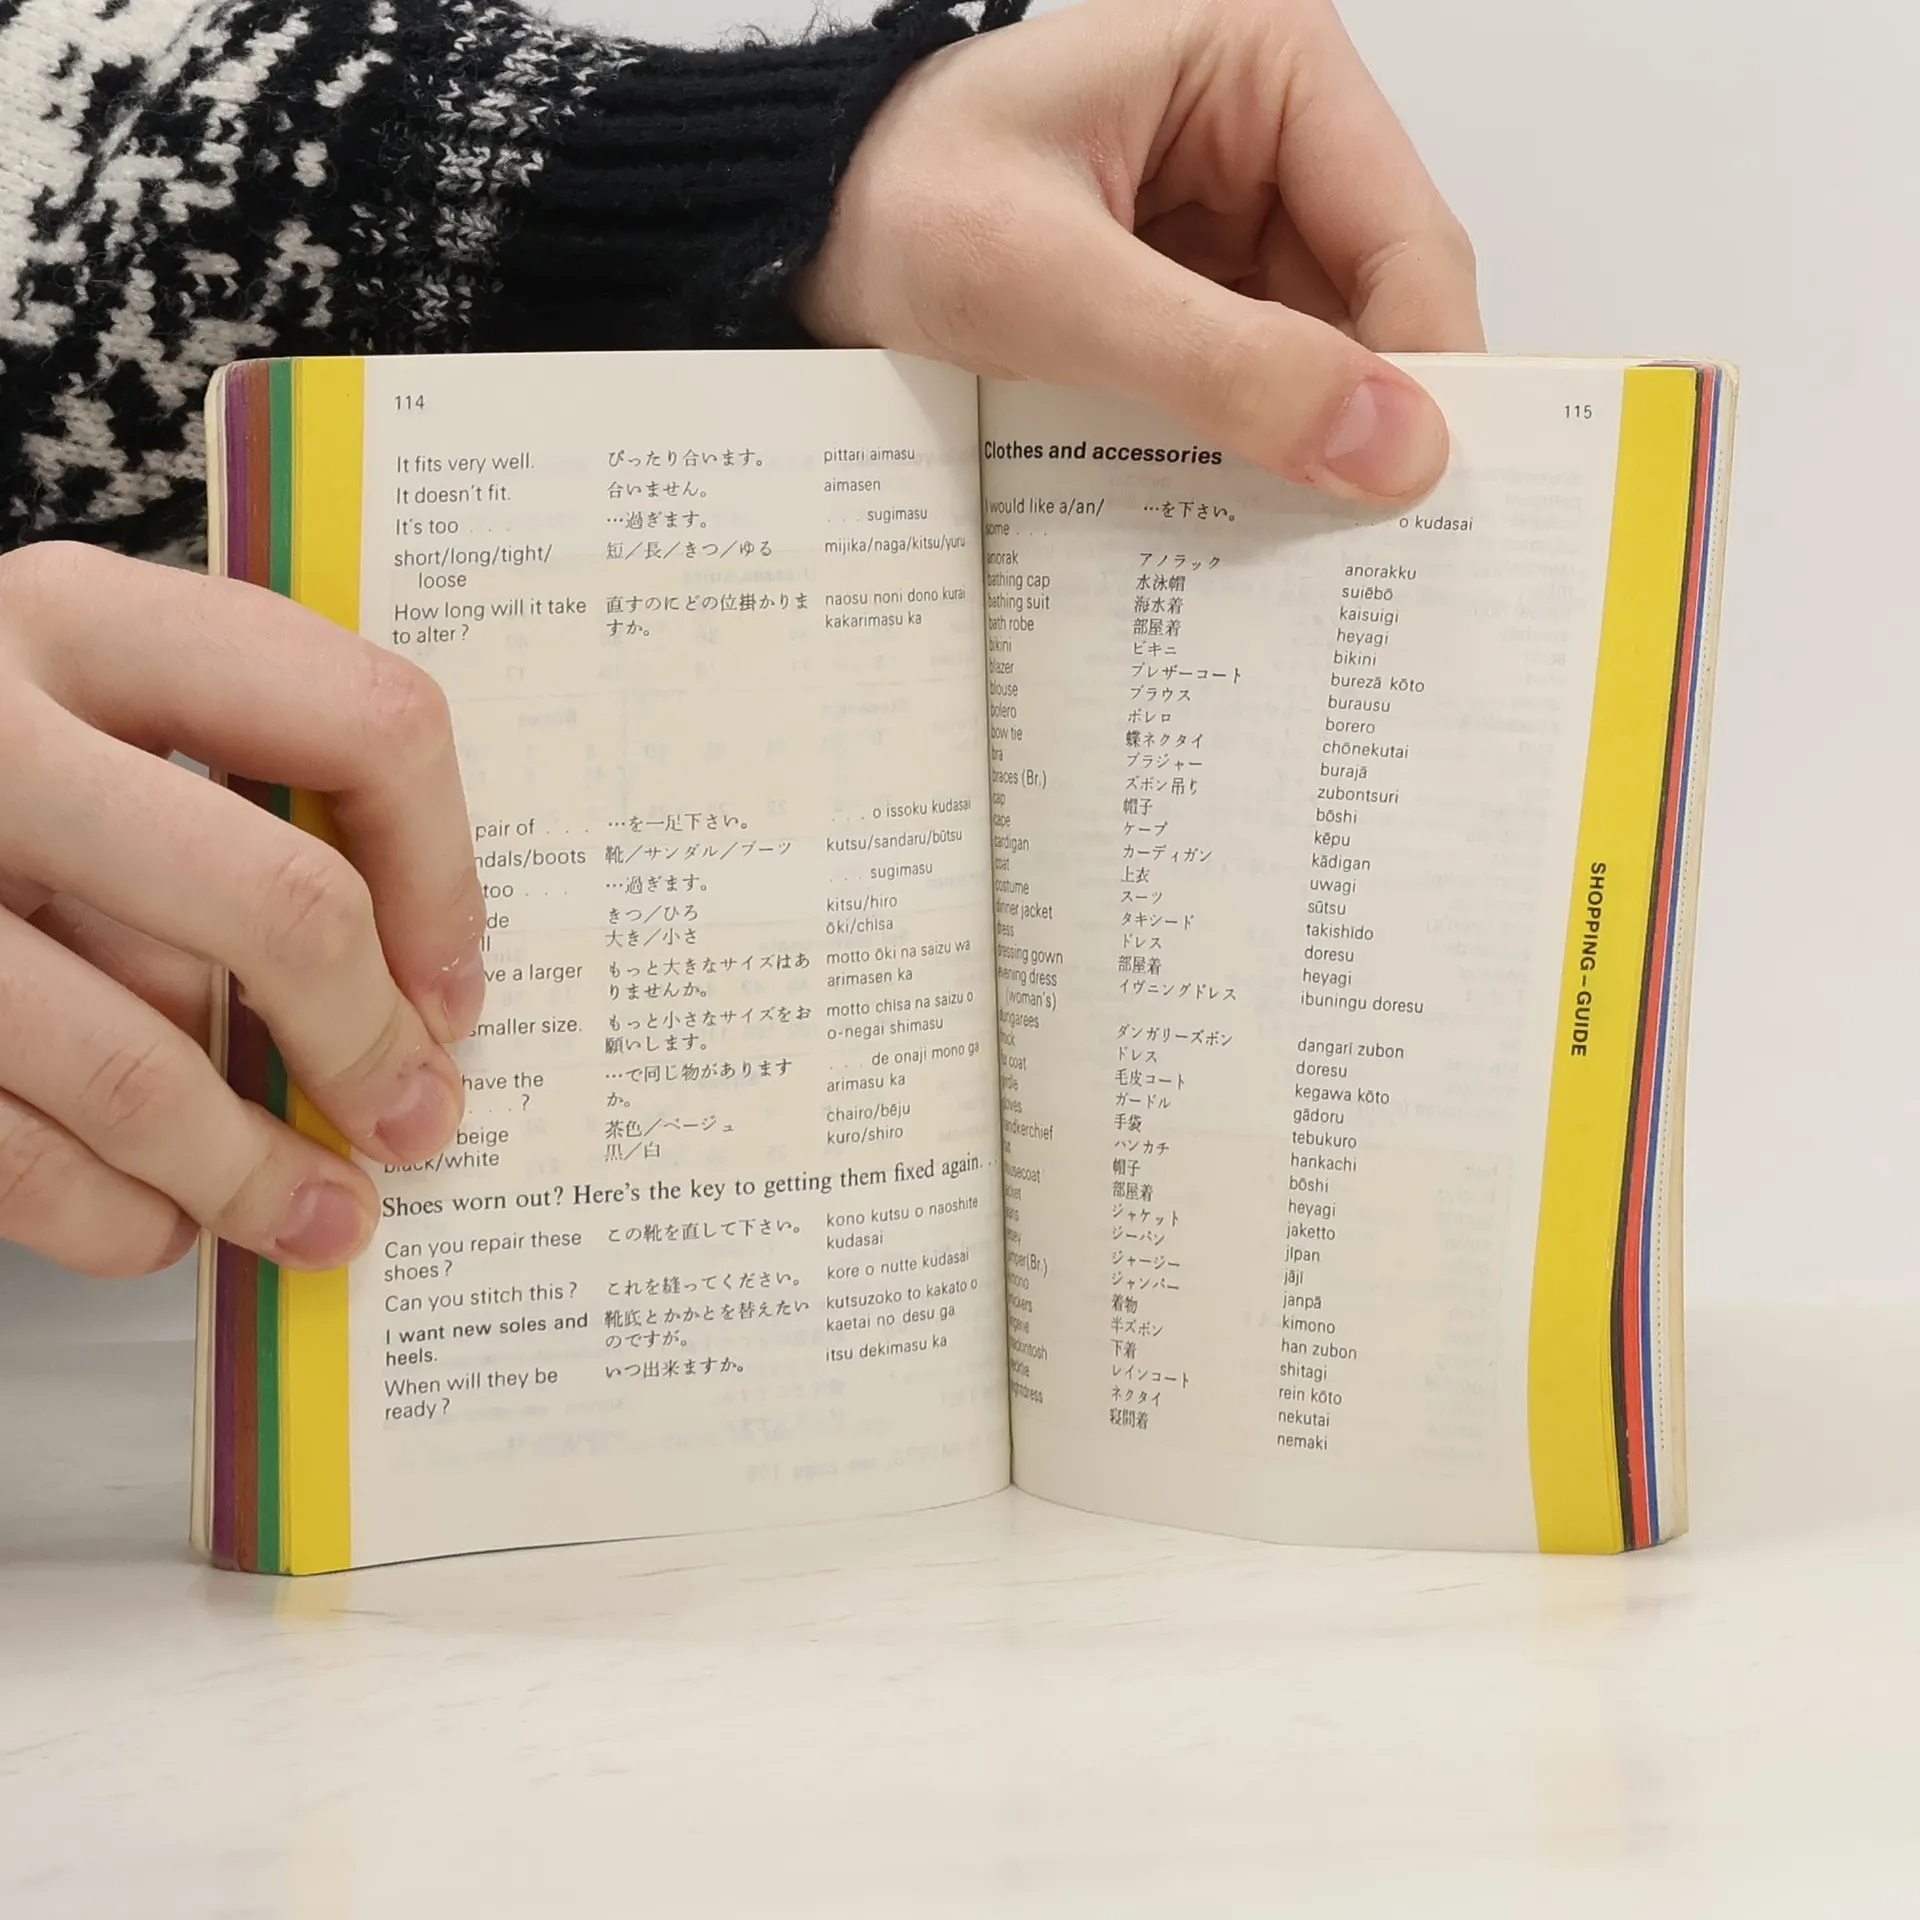 114
It fits very well. ぴったり合います。 pittari aimasu
It doesn't fit. 合いません。 aimasen
It's too . . . …過ぎます。 . . . sugimasu
short/long/tight/ 短／長／きつ／ゆる mijika/naga/kitsu/yuru
loose
How long will it take 直すのにどの位掛かりま naosu noni dono kurai
to alter? すか。 kakarimasu ka
pair of . . . …を一足下さい。 . . . o issoku kudasai
boots 靴／サンダル／ブーツ kutsu/sandaru/būtsu
too . . . …過ぎます。 . . . sugimasu
きつ／ひろ kitsu/hiro
大き／小さ ōki/chīsa
a larger もっと大きなサイズはあ motto ōki na saizu wa
りませんか。 arimasen ka
smaller size. もっと小さなサイズをお motto chīsa na saizu o
願いします。 o-negai shimasu
have the …で同じ物があります . . . de onaji mono ga
. . . ? か。 arimasu ka
beige 茶色／ベージュ chairo/bēju
black/white 黒／白 kuro/shiro
Shoes worn out? Here's the key to getting them fixed again. . .
Can you repair these この靴を直して下さい。 kono kutsu o naoshite
shoes? kudasai
Can you stitch this? これを縫ってください。 kore o nutte kudasai
I want new soles and 靴底とかかとを替えたい kutsuzoko to kakato o
heels. のですが。 kaetai no desu ga
When will they be いつ出来ますか。 itsu dekimasu ka
ready?
115
Clothes and accessories
I would like a/an/ …を下さい。 . . . o kudasai
some . . .
anorak アノラック anorakku
bathing cap 水泳帽 suiēbō
bathing suit 海水着 kaisuigi
bath robe 部屋着 heyagi
bikini ビキニ bikini
blazer ブレザーコート burezā kōto
blouse ブラウス burausu
bolero ボレロ borero
bow tie 蝶ネクタイ chōnekutai
bra ブラジャー burajā
braces (Br.) ズボン吊り zubontsuri
cap 帽子 bōshi
cape ケープ kēpu
cardigan カーディガン kādigan
coat 上衣 uwagi
costume スーツ sūtsu
dinner jacket タキシード takishīdo
dress ドレス doresu
dressing gown 部屋着 heyagi
evening dress イヴニングドレス ibuningu doresu
(woman's)
dungarees ダンガリーズボン dangarī zubon
ドレス doresu
coat 毛皮コート kegawa kōto
ガードル gādoru
手袋 tebukuro
handkerchief ハンカチ hankachi
帽子 bōshi
部屋着 heyagi
ジャケット jaketto
ジーパン jīpan
ジャージー jājī
(Br.) ジャンパー janpā
着物 kimono
半ズボン han zubon
下着 shitagi
レインコート rein kōto
ネクタイ nekutai
寝間着 nemaki
SHOPPING–GUIDE